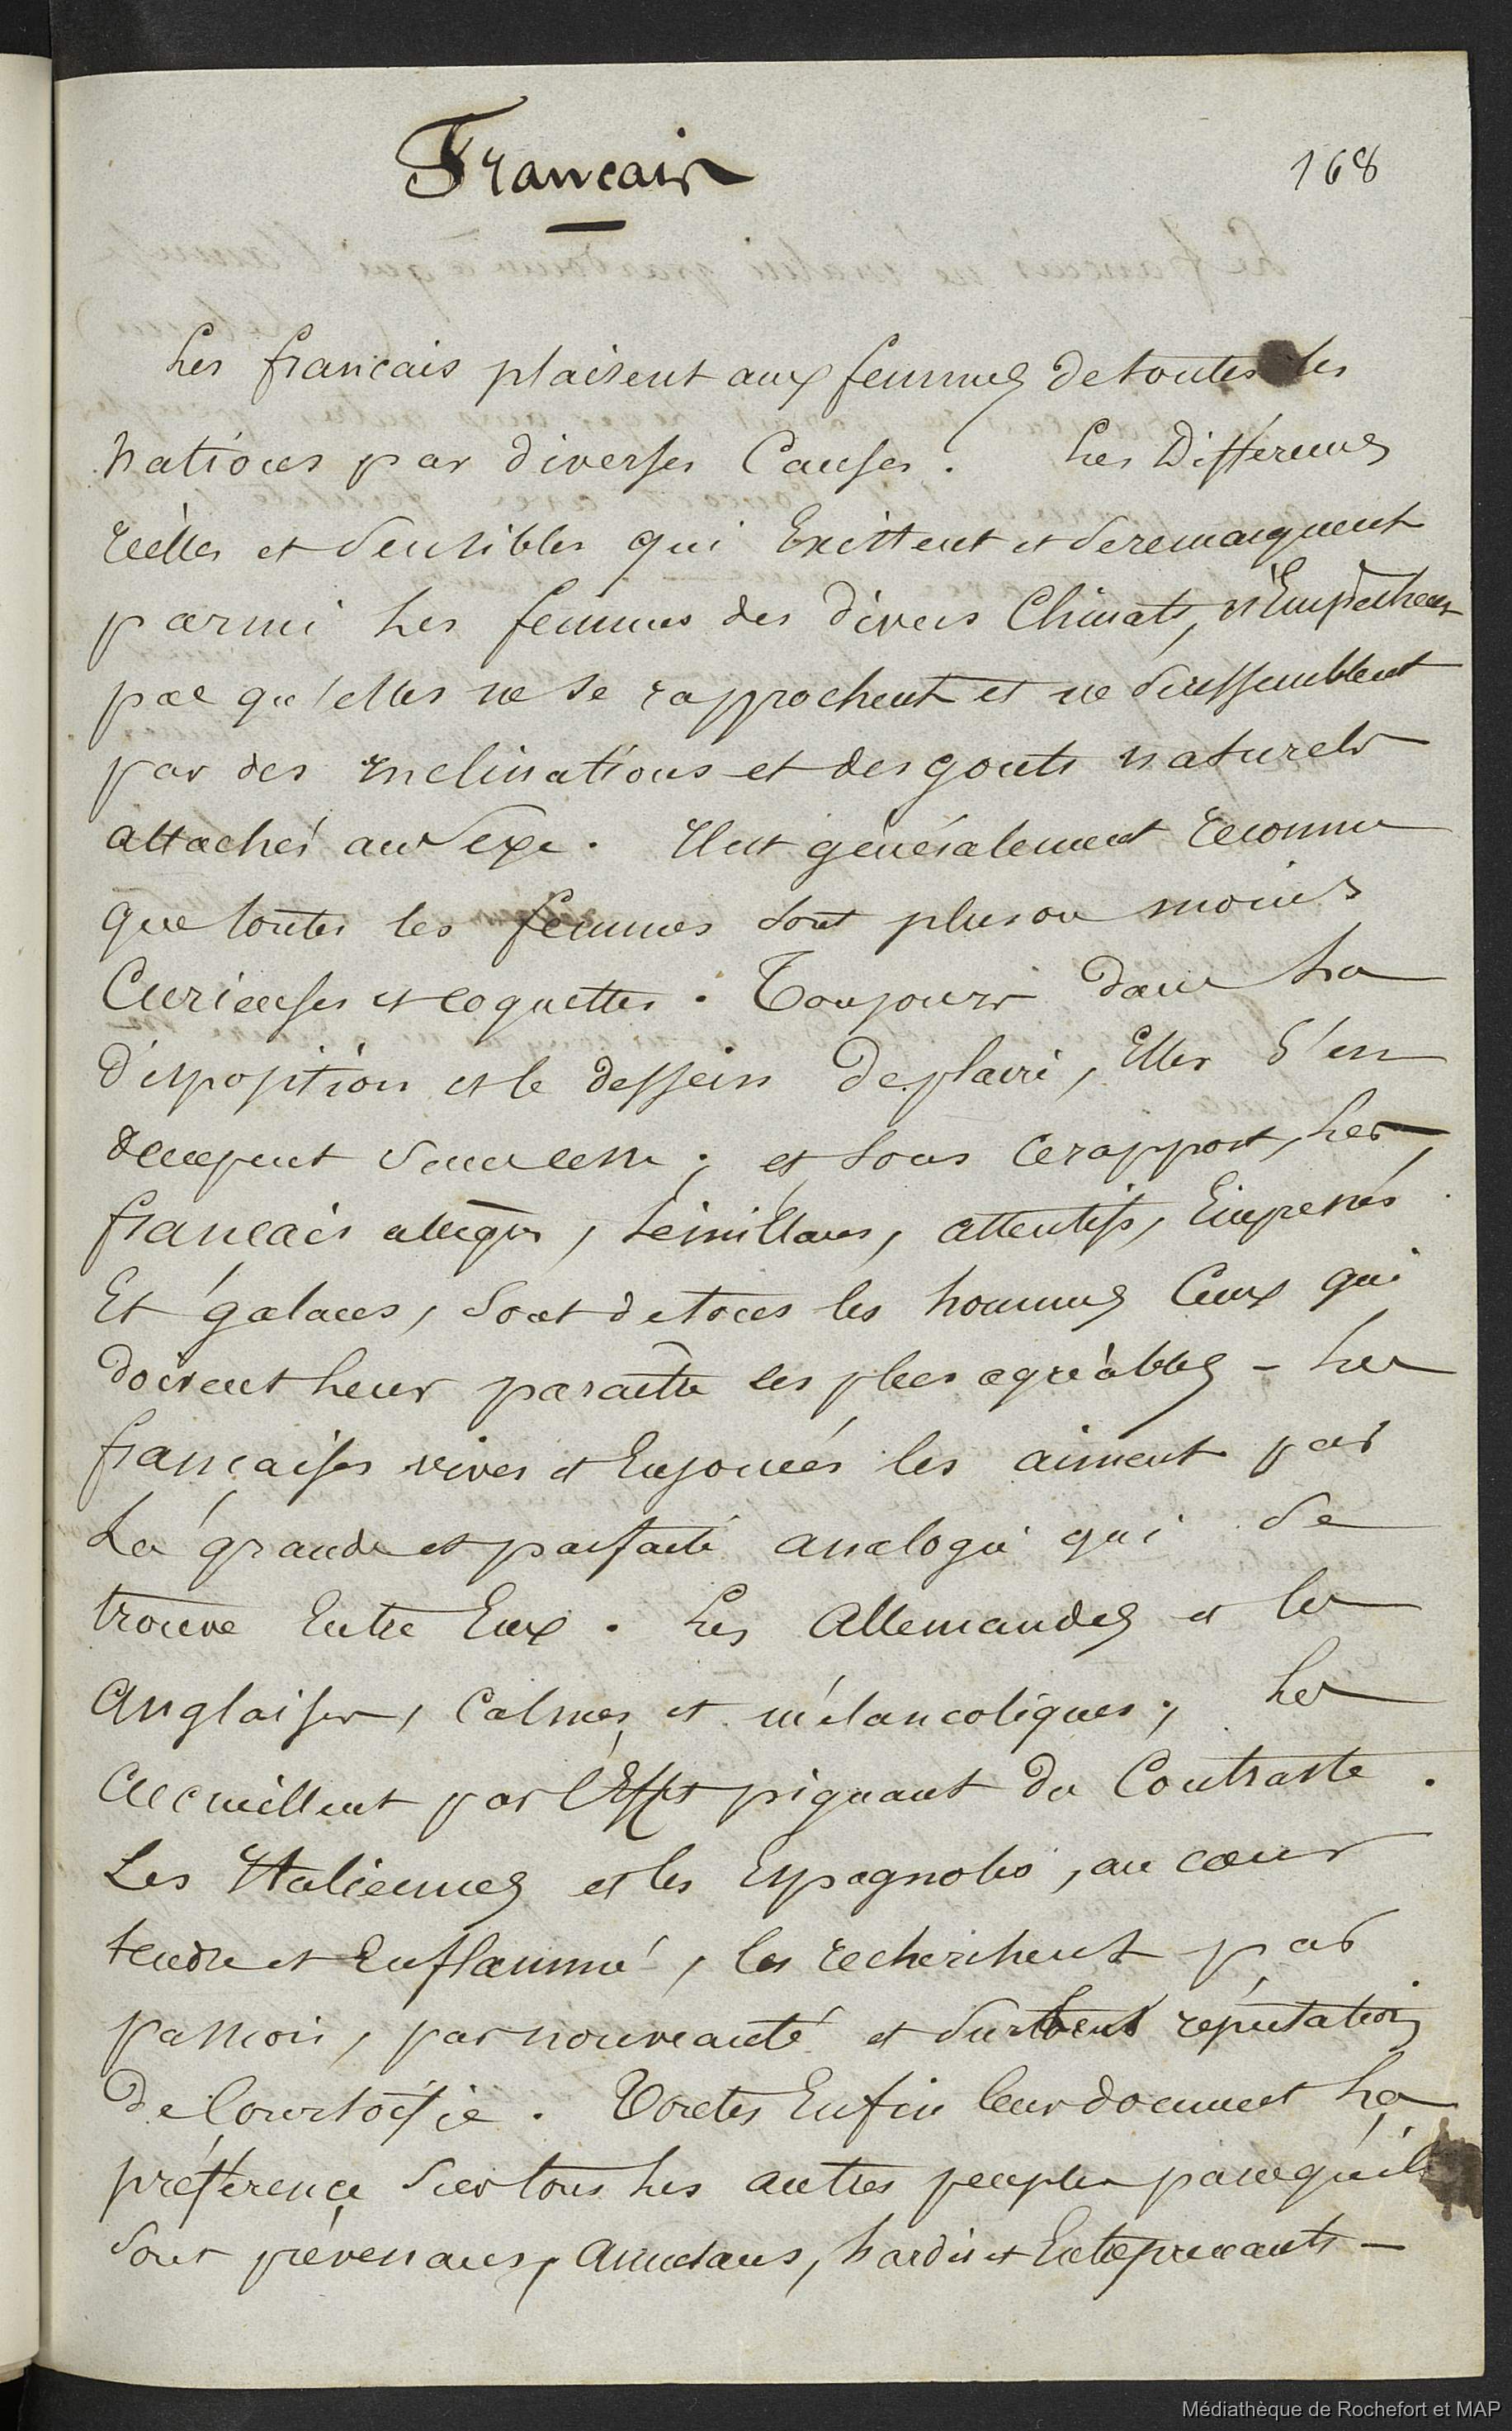 Francais
168
Les francais plaisent aux femmes de toutes les
nations par diverses Causes. Les Différences
réelles et sensibles qui Existent et se remarquent
parmi les femmes des divers Climats, n'Empêchent
pas qu'elles ne se rapprochent et ne se ressemblent
par des inclinations et des gouts naturels
attachés au Sexe. Il est généralement reconnu
que toutes les femmes sont plus ou moins
Curieuses et coquettes. Toujours dans la
disposition et le dessein de plaire, Elles s'en
occupent sans cesse ; et sous ce rapport, les
francais allègres, sémillans, attentifs, Empressés
Et galans, sont de tous les hommes Ceux qui
doivent leur paraître les plus agréables - les
françaises vives et Enjouées les aiment par
La grande et parfaite analogie qui se
trouve Entre Eux. Les Allemandes et les
Anglaises, Calmes et mélancoliques, les
accueillent par l'Effet piquant du Contraste.
Les Italiennes et les Espagnoles, au cœur
tendre et Enflammé, les recherchent par
passion, par nouveauté et sur leur réputation
de Courtoisie. Toutes Enfin leur donnent la
préférence sur tous les autres peuples parcequ'ils
sont prévenans, amusans, hardis et Entreprenants -
Médiathèque de Rochefort et MAP